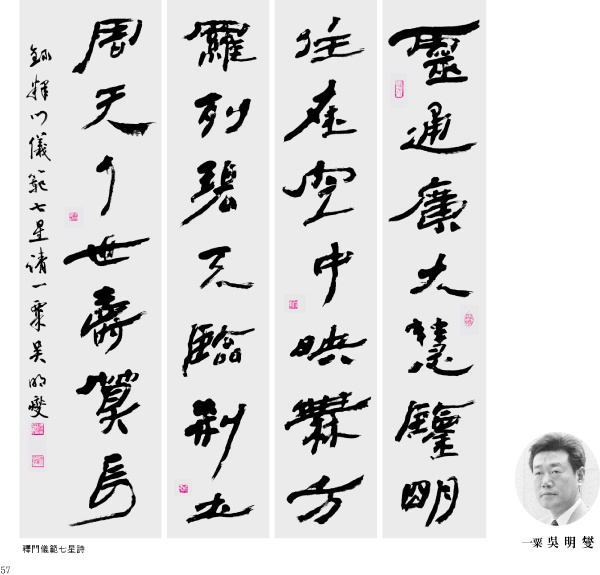 靈通廣大慧鑑明
住在空中映無方
羅列碧天臨刹土
周天人世壽算長
錄釋門儀範七星請一粟吳明燮
釋門儀範七星詩
一粟 吳明燮
57